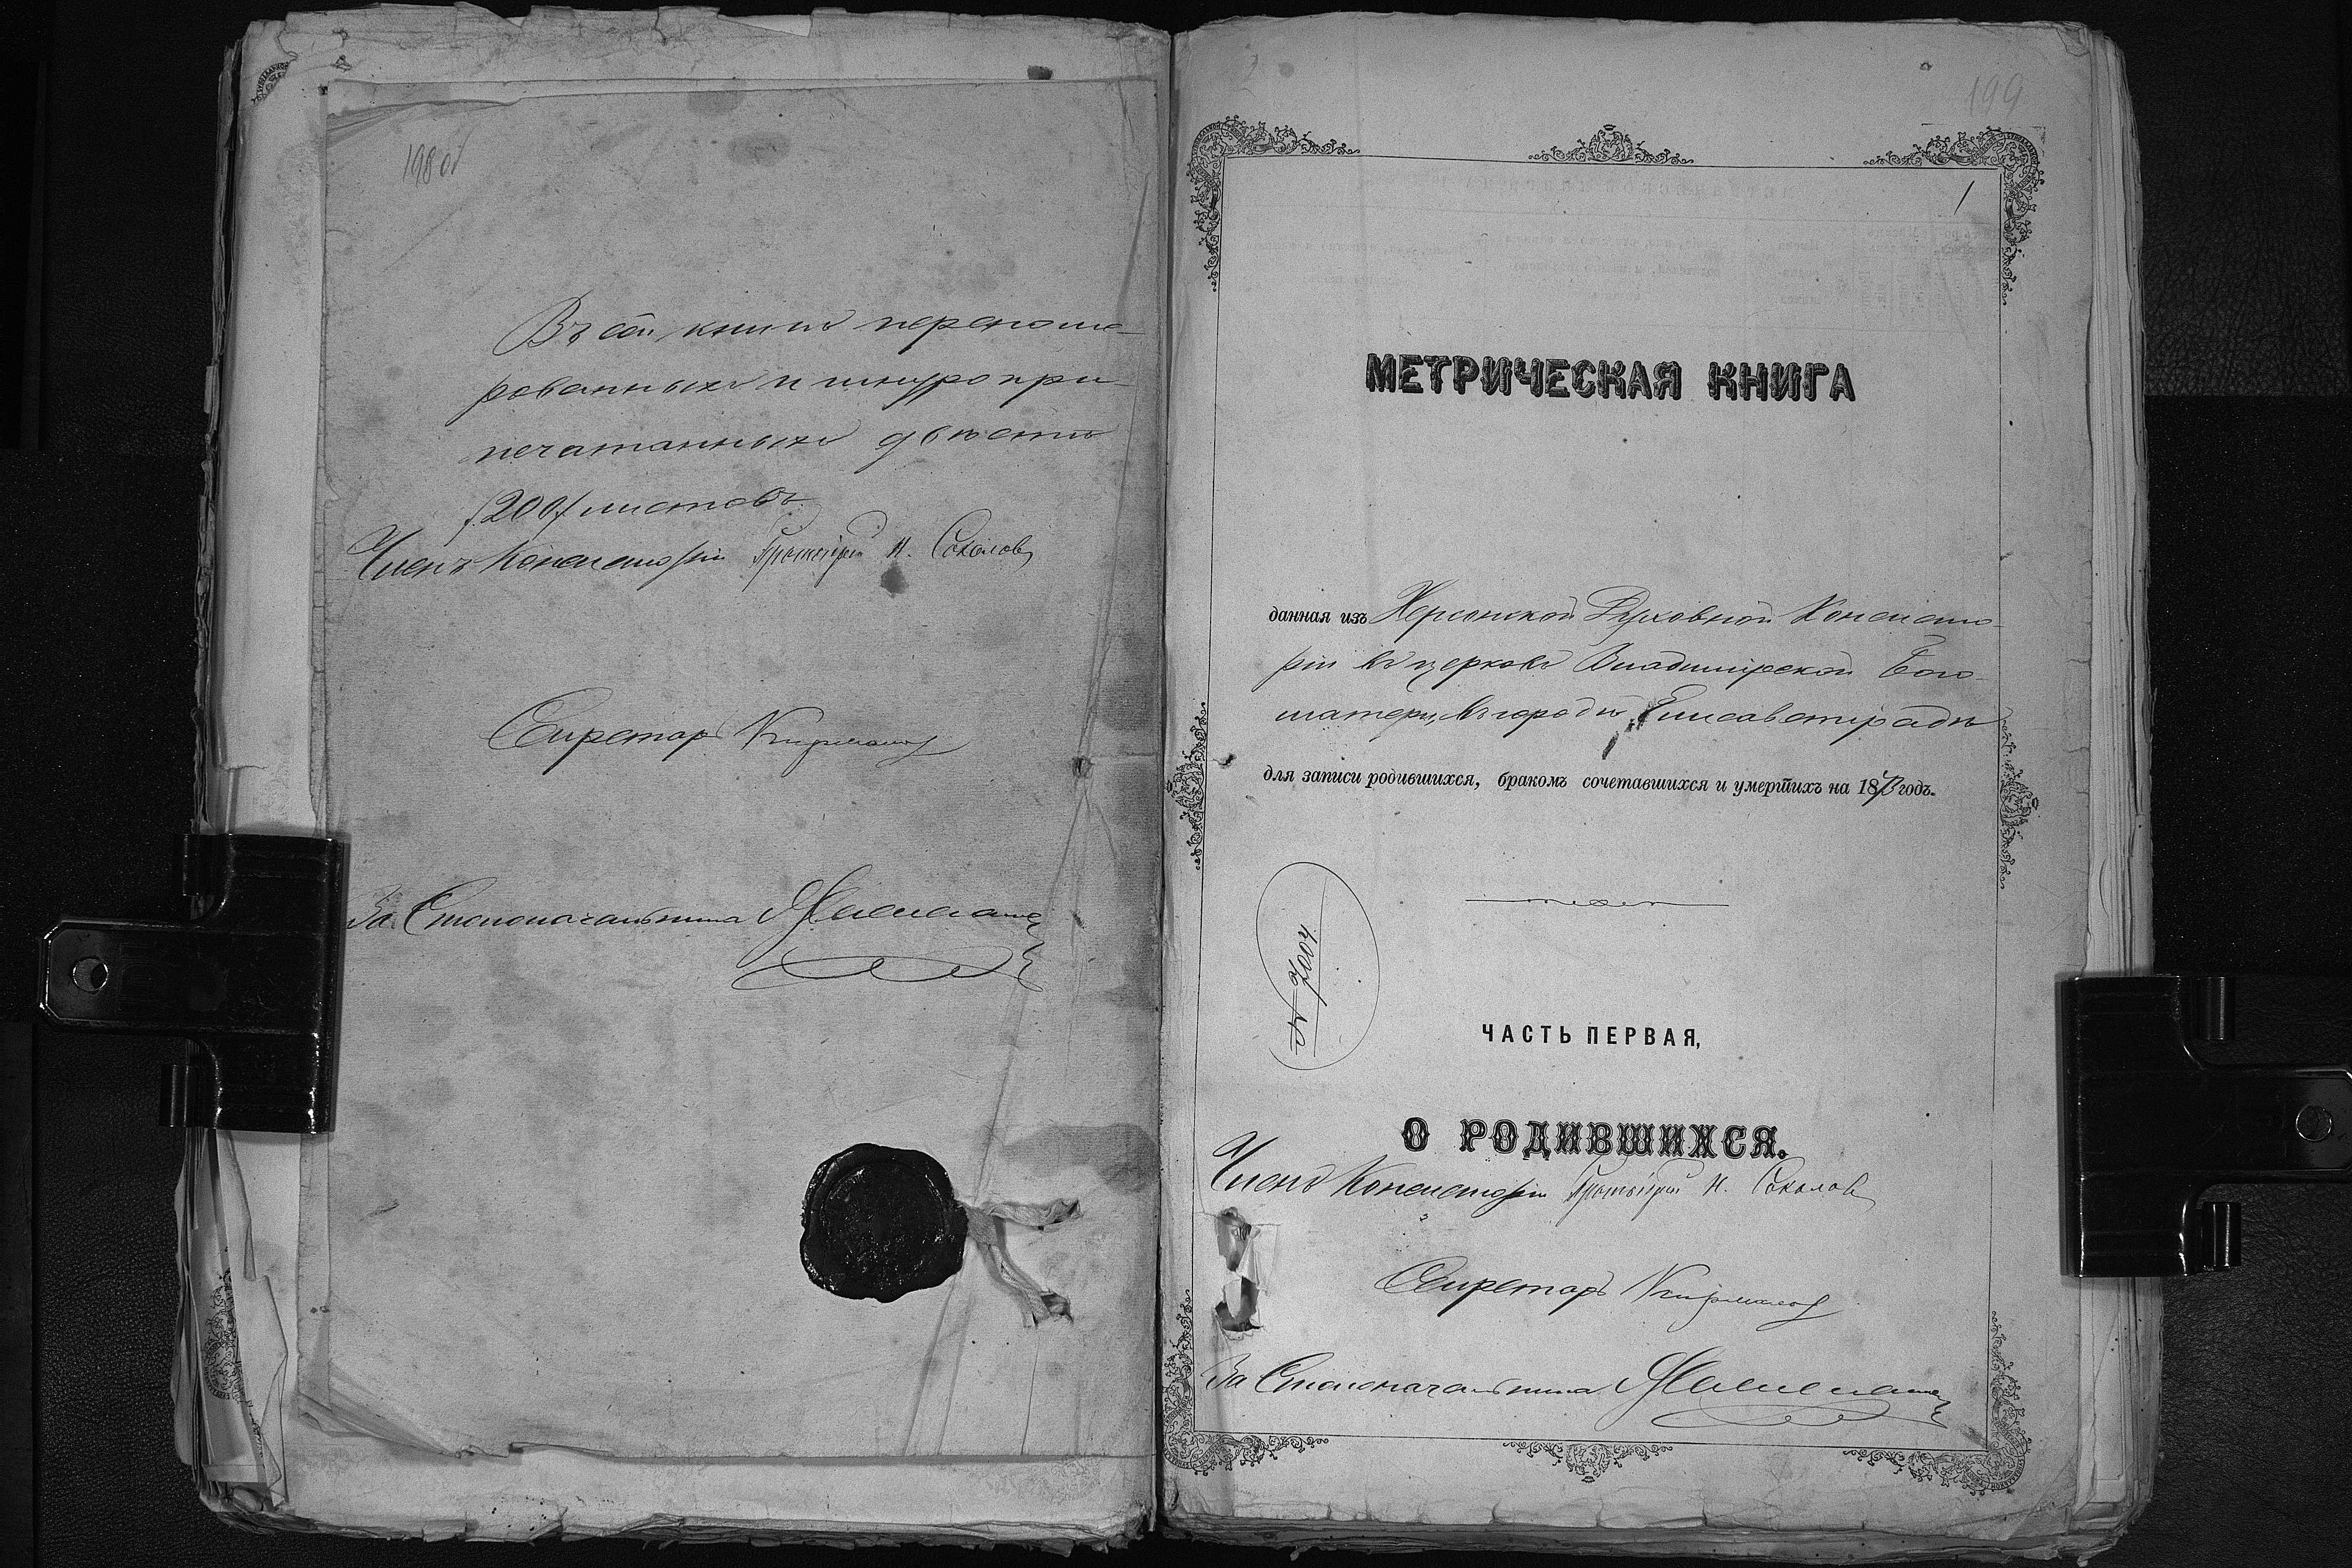 198 об
Въ сей книгѣ перенуме-
рованныхъ и шнуропри-
печатанныхъ двѣсти
/200/ листовъ.
Членъ Консисторіи Протоіерей Н. Соколовъ
Секретарь
За Столоначальника
199
1
МЕТРИЧЕСКАЯ КНИГА
данная изъ Херсонской Духовной Консисто-
ріи въ церковь Владимірской Бого-
матери, въ городѣ Елисаветградѣ
для записи родившихся, бракомъ сочетавшихся и умершихъ на 1873 годъ.
№ 7004
ЧАСТЬ ПЕРВАЯ,
О РОДИВШИХСЯ.
Членъ Консисторіи Протоіерей Н. Соколовъ
Секретарь
За Столоначальника